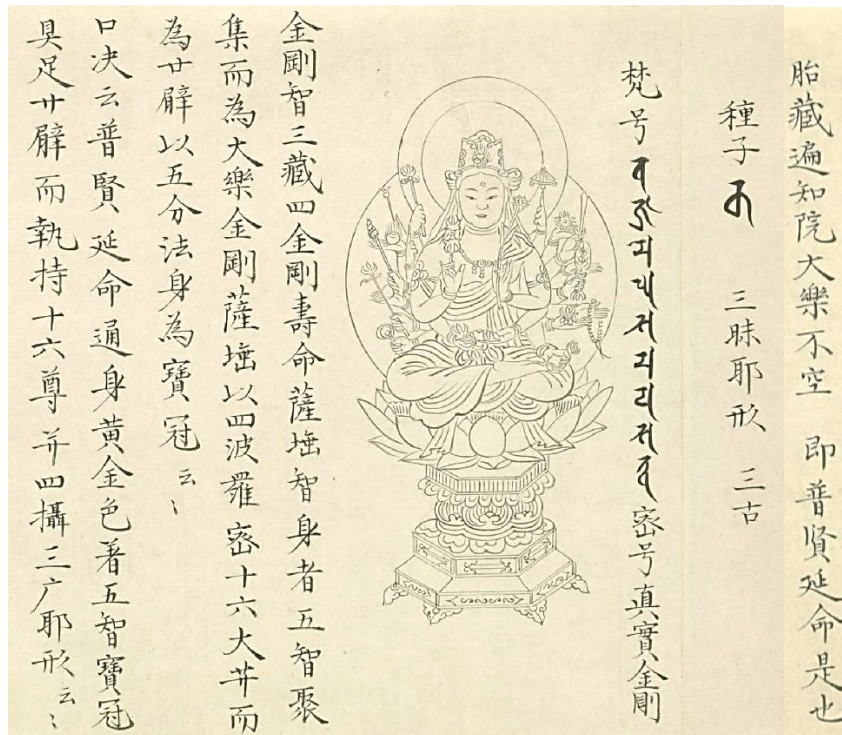 胎藏遍知院大樂不空 即普賢延命是也
種子 三昧耶形 三古
梵号 密号真實金剛
金剛智三藏四金剛壽命薩埵智身者五智聚
集而為大樂金剛薩埵以四波羅密十六大𦬇而
為廿臂以五分法身為寶冠云〻
口决云普賢延命通身黄金色著五智寶冠
具足廿臂而執持十六尊并四攝三广耶形云〻